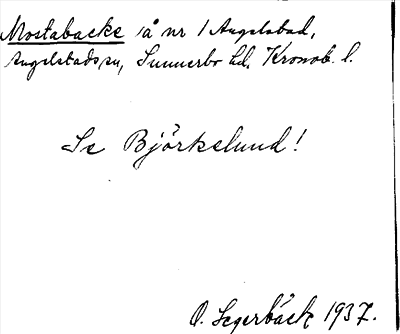 Mostabacke så nr 1 Angelstad,
Angelstads sn, Sunnerbo hd. Kronob. l.
Se Björkelund!
O. Segerbäck 1937.